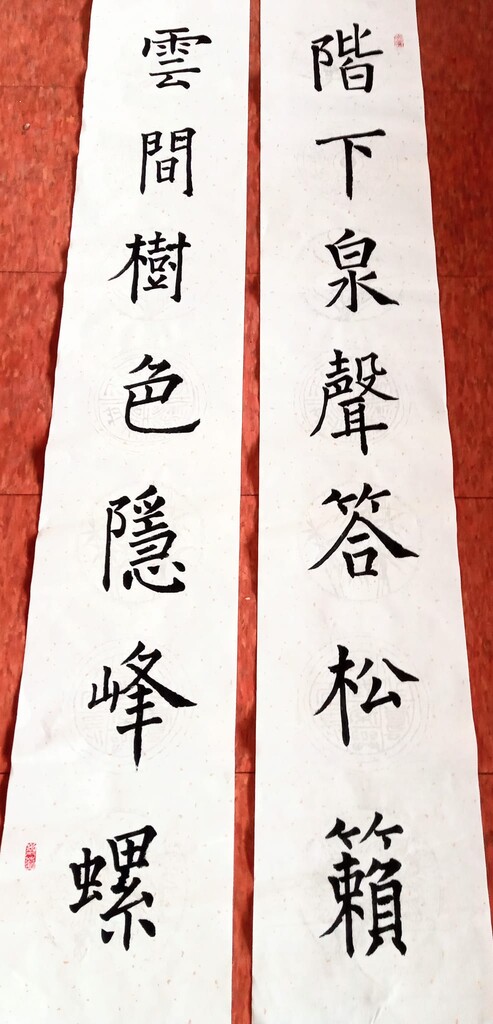 階下泉聲答松籟
雲間樹色隱峰螺